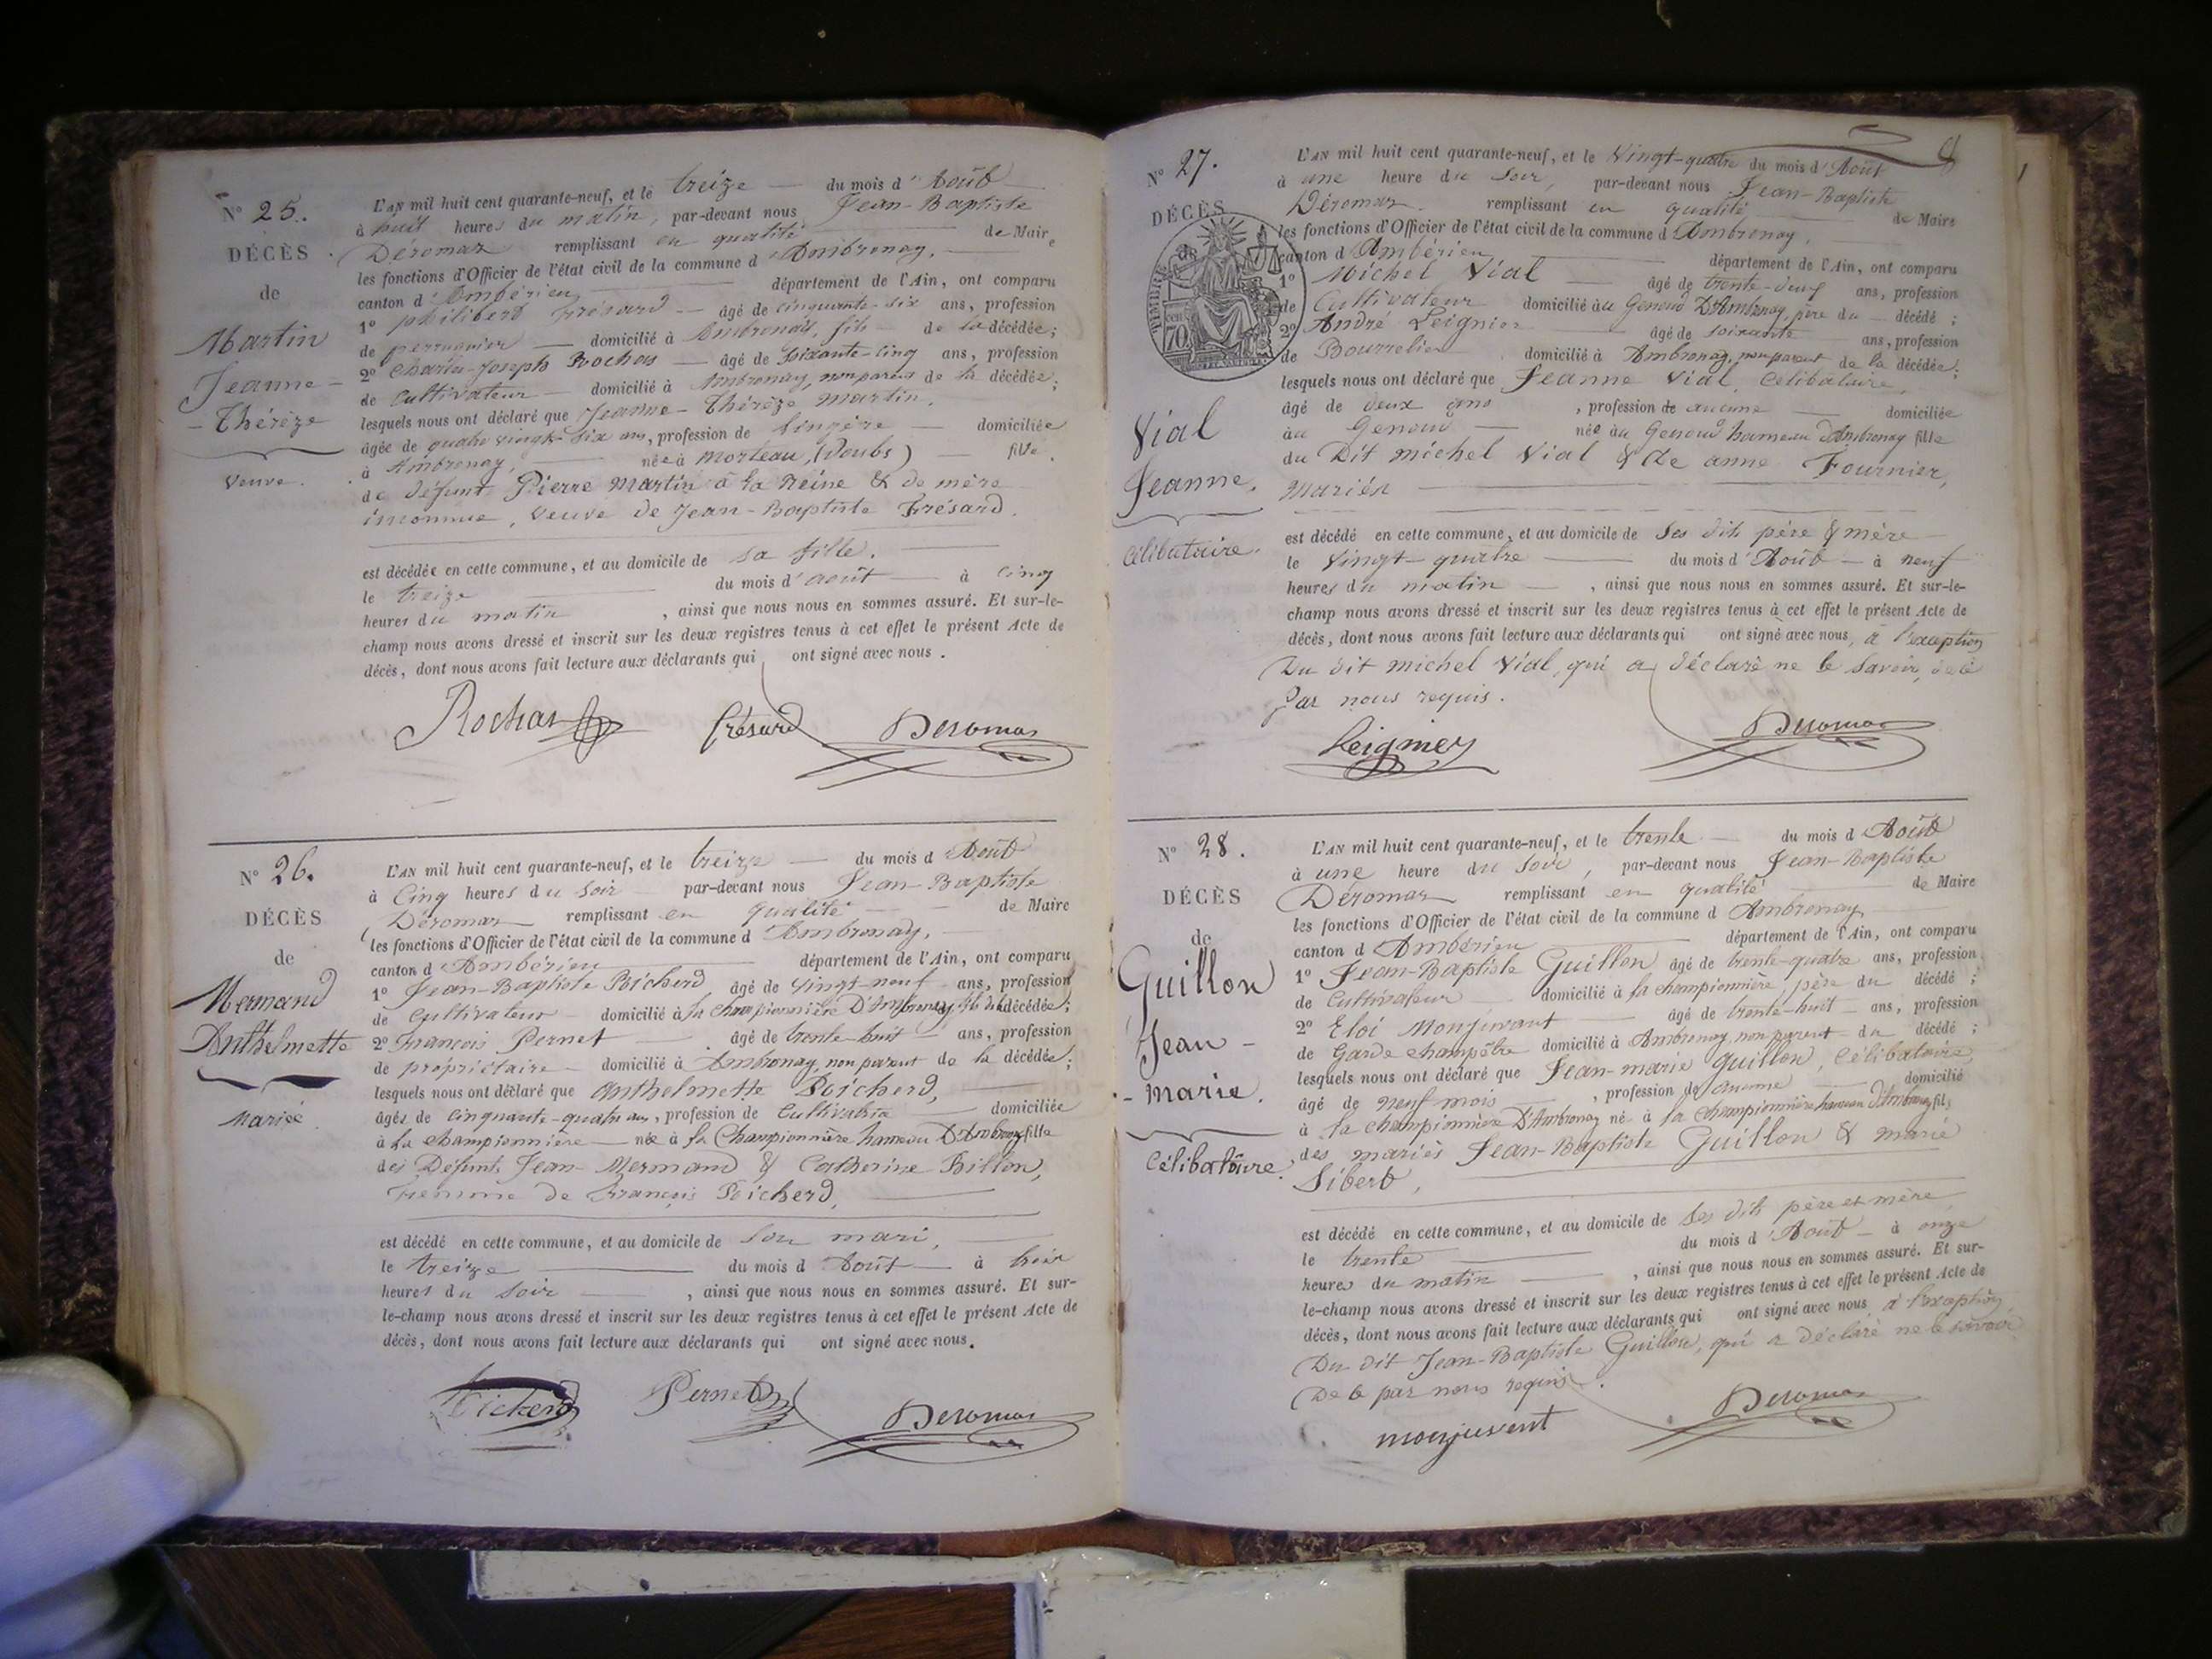 N° 25.
DÉCÈS
de
Martin
Jeanne-
-Thérèze
Veuve.
L'AN mil huit cent quarante-neuf, et le treize du mois d'Août
à huit heures du matin, par-devant nous Jean-Baptiste
Déromas remplissant en qualité de Maire
les fonctions d'Officier de l'état civil de la commune d'Ambronay.
canton d'Ambérieu département de l'Ain, ont comparu
1° philibert Frésard âgé de cinquante-six ans, profession
de perruquier domicilié à Ambronay, fils de la décédée;
2° Charles-Joseph Rochas âgé de soixante-cinq ans, profession
de Cultivateur domicilié à Ambronay, non parent de la décédée;
lesquels nous ont déclaré que Jeanne-Thérèze Martin,
âgée de quatre vingt-six ans, profession de lingère domiciliée
à Ambronay, née à Morteau, (Doubs) fille
de défunt Pierre Martin à la Reine & de mère
inconnue, veuve de Jean-Baptiste Frésard.
est décédée en cette commune, et au domicile de sa fille.
le treize du mois d'août à cinq
heures du matin, ainsi que nous nous en sommes assuré. Et sur-le-
champ nous avons dressé et inscrit sur les deux registres tenus à cet effet le présent Acte de
décès, dont nous avons fait lecture aux déclarants qui ont signé avec nous.
Rochas Frésard Deromas
N° 26.
DÉCÈS
de
Mermand
Anthelmette
Mariée
L'AN mil huit cent quarante-neuf, et le treize du mois d Août
à Cinq heures du soir par-devant nous Jean-Baptiste
Déromas remplissant en qualité de Maire
les fonctions d'Officier de l'état civil de la commune d'Ambronay,
canton d'Ambérieu département de l'Ain, ont comparu
1° Jean-Baptiste Poicherd âgé de vingt-neuf ans, profession
de Cultivateur domicilié à la Championnière D'Ambronay, fils de la décédée;
2° François Pernet âgé de trente-huit ans, profession
de propriétaire domicilié à Ambronay, non parent de la décédée;
lesquels nous ont déclaré que Anthelmette Poicherd,
âgés de cinquante-quatre ans, profession de Cultivatrice domiciliée
à la championnière née à la Championnière hameau D'Ambronay fille
des Défunts Jean Mermand & Catherine Billon,
Femme de François Poicherd,
est décédé en cette commune, et au domicile de son mari,
le treize du mois d Août à trois
heures du soir, ainsi que nous nous en sommes assuré. Et sur-
le-champ nous avons dressé et inscrit sur les deux registres tenus à cet effet le présent Acte de
décès, dont nous avons fait lecture aux déclarants qui ont signé avec nous.
Poicherd Pernet Deromas
N° 27.
DÉCÈS
TIMBRE
70
Vial
Jeanne.
Célibataire.
L'AN mil huit cent quarante-neuf, et le Vingt-quatre du mois d'Août
à une heure du soir, par-devant nous Jean-Baptiste
Déromas remplissant en qualité de Maire
les fonctions d'Officier de l'état civil de la commune d'Ambronay,
canton d'Ambérieu département de l'Ain, ont comparu
1° Michel Vial âgé de trente-deux ans, profession
de Cultivateur domicilié au Genoud D'Ambronay, père du décédé;
2° André Leignier âgé de soixante ans, profession
de Bourrelier domicilié à Ambronay, non parent de la décédée;
lesquels nous ont déclaré que Jeanne Vial, Célibataire,
âgé de deux ans, profession de aucune domiciliée
au Genoud née au Genoud hameau d'Ambronay fille
du Dit Michel Vial & de anne Fournier,
Mariés
est décédé en cette commune, et au domicile de ses dits père & mère
le Vingt-quatre du mois d'Août à neuf
heures du matin, ainsi que nous nous en sommes assuré. Et sur-le-
champ nous avons dressé et inscrit sur les deux registres tenus à cet effet le présent Acte de
décès, dont nous avons fait lecture aux déclarants qui ont signé avec nous, à l'exception
Du dit Michel Vial, qui a déclaré ne le savoir, de ce
par nous requis.
Leignier Deromas
N° 28.
DÉCÈS
de
Guillon
Jean-
-Marie.
Célibataire.
L'AN mil huit cent quarante-neuf, et le trente du mois d Août
à une heure du soir, par-devant nous Jean-Baptiste
Déromas remplissant en qualité de Maire
les fonctions d'Officier de l'état civil de la commune d Ambronay
canton d Ambérieu département de l'Ain, ont comparu
1° Jean-Baptiste Guillon âgé de trente-quatre ans, profession
de Cultivateur domicilié à la championnière, père du décédé;
2° Eloi Monjuvant âgé de trente-huit ans, profession
de Garde champêtre domicilié à Ambronay, non parent du décédé;
lesquels nous ont déclaré que Jean-Marie Guillon, Célibataire,
âgé de neuf mois, profession de aucune domicilié
à la championnière D'Ambronay né à la Championnière hameau d'Ambronay fils
des mariés Jean-Baptiste Guillon & Marie
Sibert,
est décédé en cette commune, et au domicile de ses dits père et mère
le trente du mois d'Août à onze
heures du matin, ainsi que nous nous en sommes assuré. Et sur-
le-champ nous avons dressé et inscrit sur les deux registres tenus à cet effet le présent Acte de
décès, dont nous avons fait lecture aux déclarants qui ont signé avec nous, à l'exception
Du dit Jean-Baptiste Guillon, qui a déclaré ne le savoir
De ce par nous requis.
monjuvent Deromas